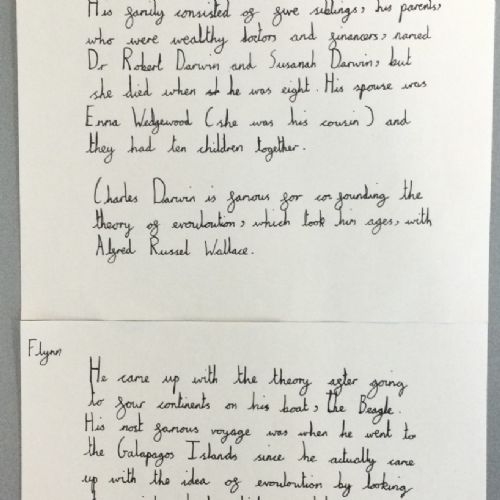 His family consisted of five siblings, his parents,
who were wealthy doctors and financers, named
Dr Robert Darwin and Susanah Darwin, but
she died when he was eight. His spouse was
Emma Wedgewood (she was his cousin) and
they had ten children together.
Charles Darwin is famous for co-founding the
theory of evouloution, which took him ages, with
Alfred Russel Wallace.
Flynn
He came up with the theory after going
to four continents on his boat, the Beagle.
His most famous voyage was when he went to
the Galapagos Islands since he actually came
up with the idea of evouloution by looking